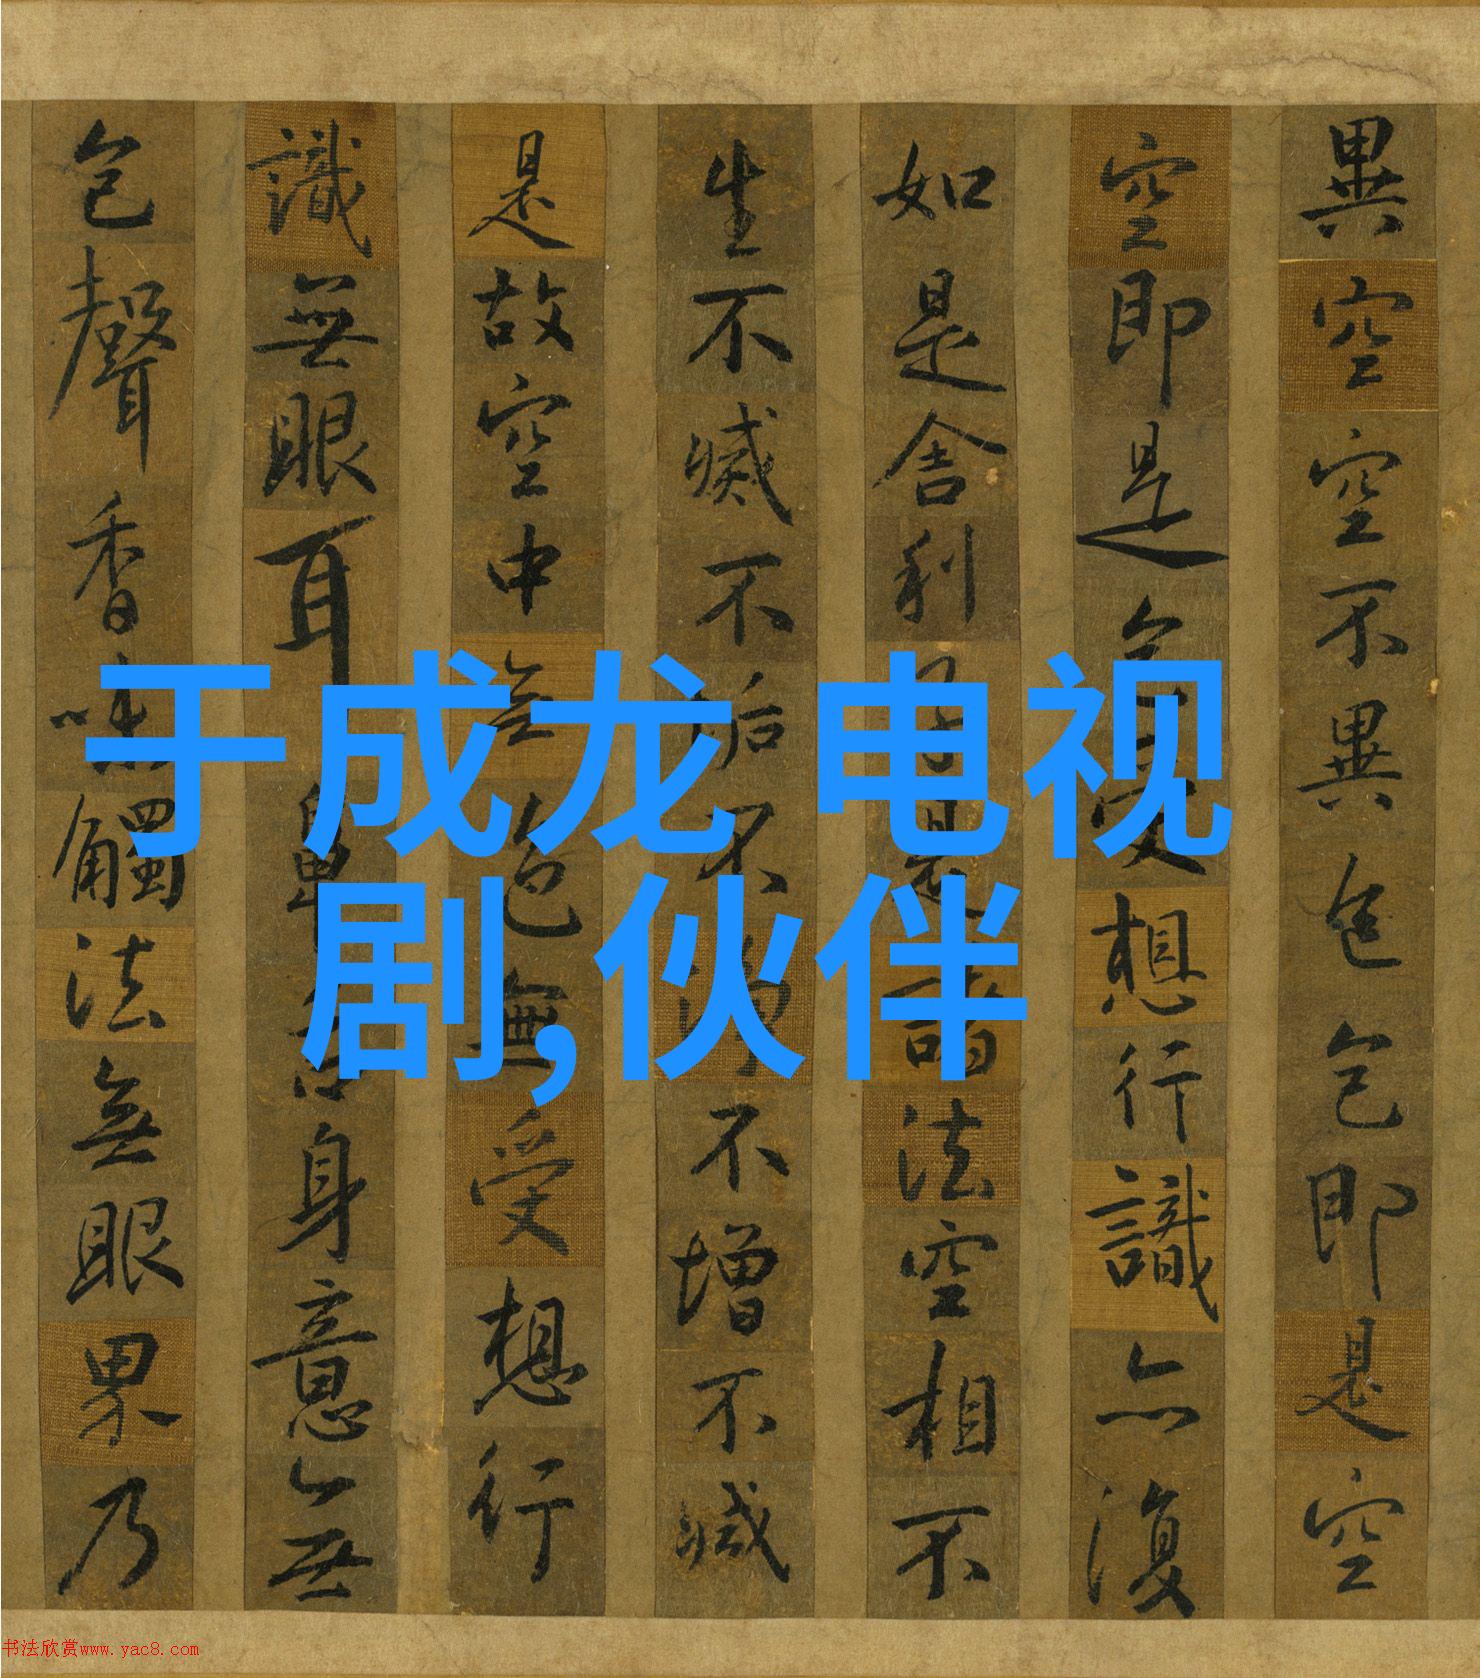 于成龙 电视
剧,伙伴
異空空不異色色即是空
空即是色受想行識亦復
如是舍利子是諸法空相不
生不滅不垢不淨不增不減
是故空中無色無受想行
識無眼耳鼻舌身意無
色聲香味觸法無眼界乃
书法欣赏www.yac8.com